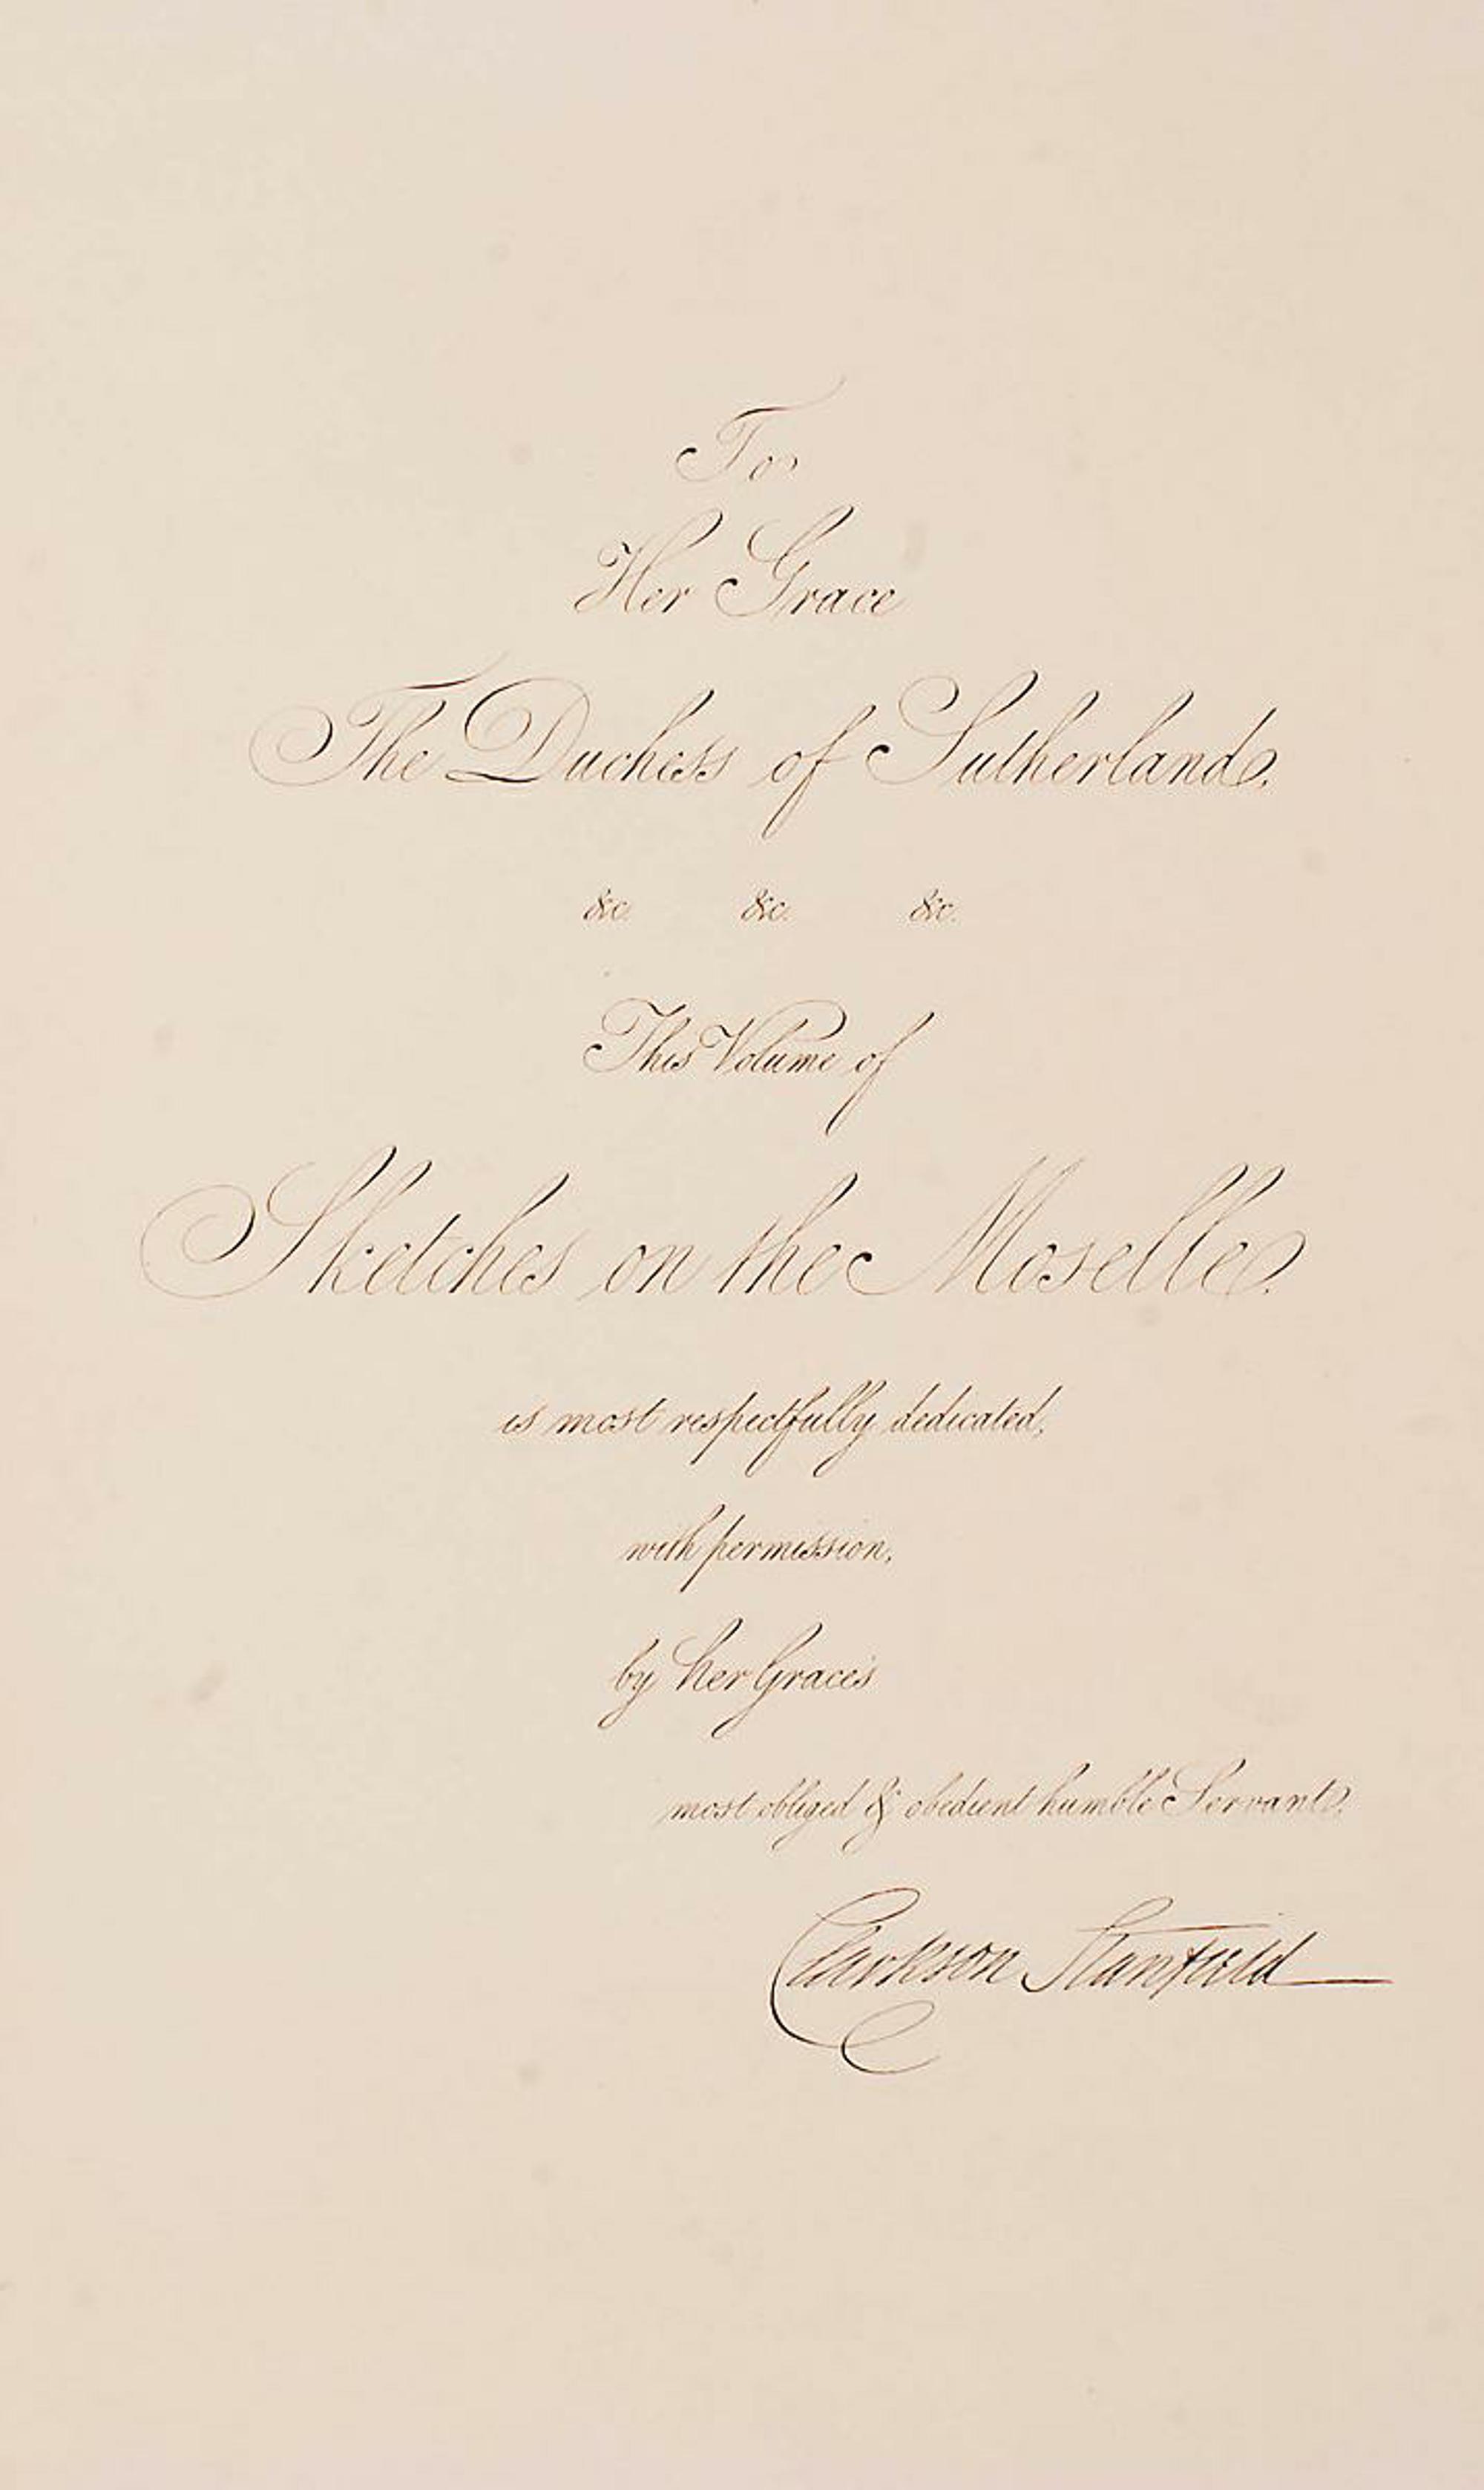 To
Her Grace
The Duchess of Sutherland.
&c. &c. &c.
This Volume of
Sketches on the Moselle.
is most respectfully dedicated,
with permission,
by her Grace's
most obliged & obedient humble Servant.
Clarkson Stanfield